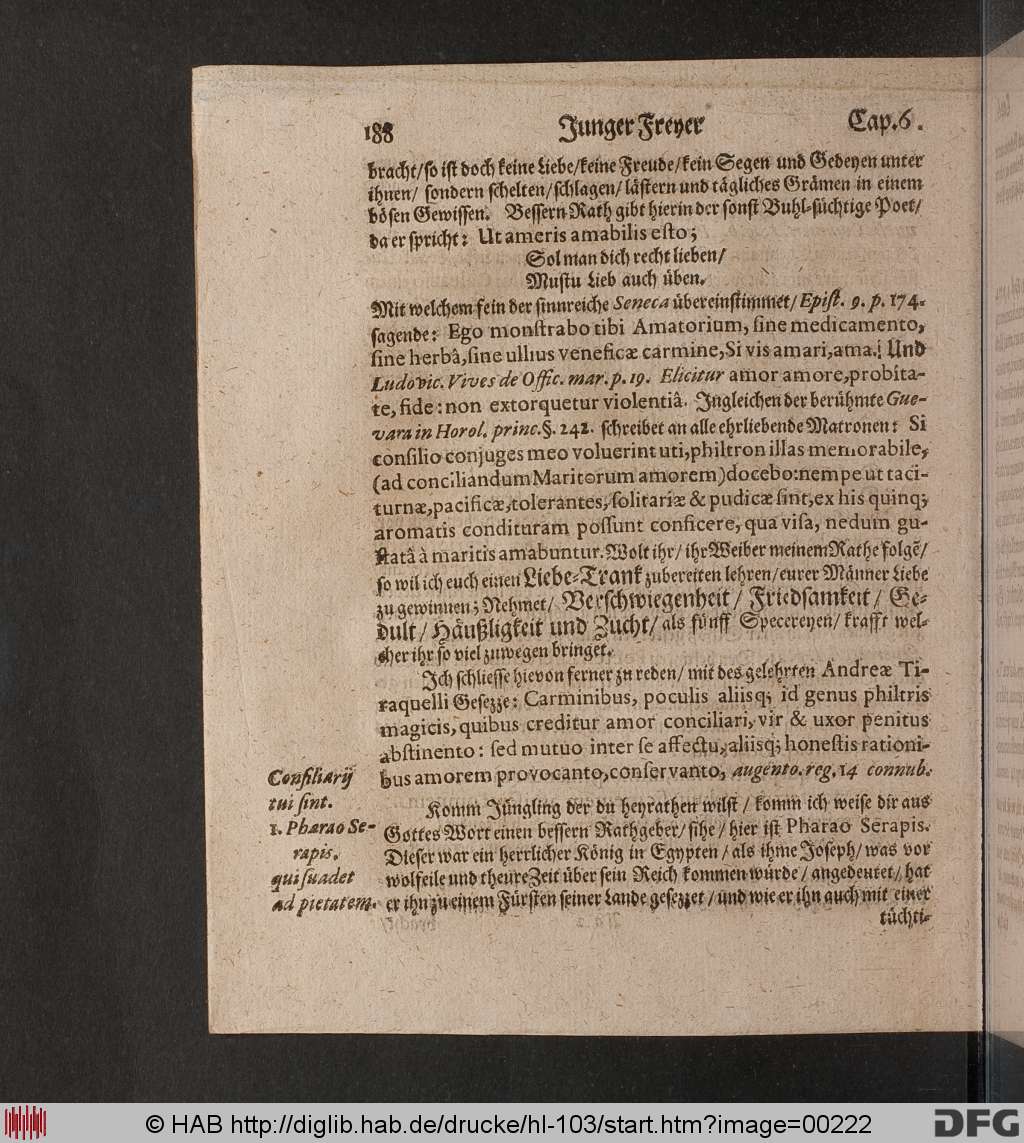 188 Junger Freyer Cap. 6.
bracht/ so ist doch keine Liebe/ keine Freude/ kein Segen und Gedeyen unter
ihnen/ sondern schelten/ schlagen/ lästern und tägliches Grämen in einem
bösen Gewissen. Bessern Rath gibt hierin der sonst Buhl-süchtige Poet/
da er spricht: Ut ameris amabilis esto;
Sol man dich recht lieben/
Mustu Lieb auch üben.
Mit welchem fein der sinnreiche Seneca übereinstimmet/ Epist. 9. p. 174.
sagende: Ego monstrabo tibi Amatorium, sine medicamento,
sine herbâ, sine ullius veneficæ carmine, Si vis amari, ama.! Und
Ludovic. Vives de Offic. mar. p. 19. Elicitur amor amore, probita-
te, fide: non extorquetur violentiâ. Ingleichen der berühmte Gue-
vara in Horol. princ. §. 242. schreibet an alle ehrliebende Matronen: Si
consilio conjuges meo voluerint uti, philtron illas memorabile,
(ad conciliandum Maritorum amorem) docebo: nempe ut taci-
turnæ, pacificæ, tolerantes, solitariæ & pudicæ sint, ex his quinq;
aromatis condituram possunt conficere, qua visa, nedum gu-
statâ à maritis amabuntur. Wolt ihr/ ihr Weiber meinem Rathe folgē/
so wil ich euch einen Liebe-Trank zubereiten lehren/ eurer Männer Liebe
zu gewinnen; Nehmet/ Verschwiegenheit/ Friedsamkeit/ Ge-
dult/ Häußligkeit und Zucht/ als fünff Specereyen/ krafft wel-
cher ihr so viel zuwegen bringet.
Ich schliesse hievon ferner zu reden/ mit des gelehrten Andreæ Ti-
raquelli Gesezze: Carminibus, poculis aliisq; id genus philtris
magicis, quibus creditur amor conciliari, vir & uxor penitus
abstinento: sed mutuo inter se affectu, aliisq; honestis rationi-
bus amorem provocanto, conservanto, augento. reg. 14 connub.
Consiliarij
tui sint.
1. Pharao Se-
rapis.
qui suadet
ad pietatem.
Komm Jüngling der du heyrathen wilst/ komm ich weise dir aus
Gottes Wort einen bessern Rathgeber/ sihe/ hier ist Pharao Serapis.
Dieser war ein herrlicher König in Egypten/ als ihme Joseph/ was vor
wolfeile und theure Zeit über sein Reich kommen würde/ angedeutet/ hat
er ihn zu einem Fürsten seiner Lande gesezzet/ und wie er ihn auch mit einer
tüchti-
© HAB http://diglib.hab.de/drucke/hl-103/start.htm?image=00222
DFG